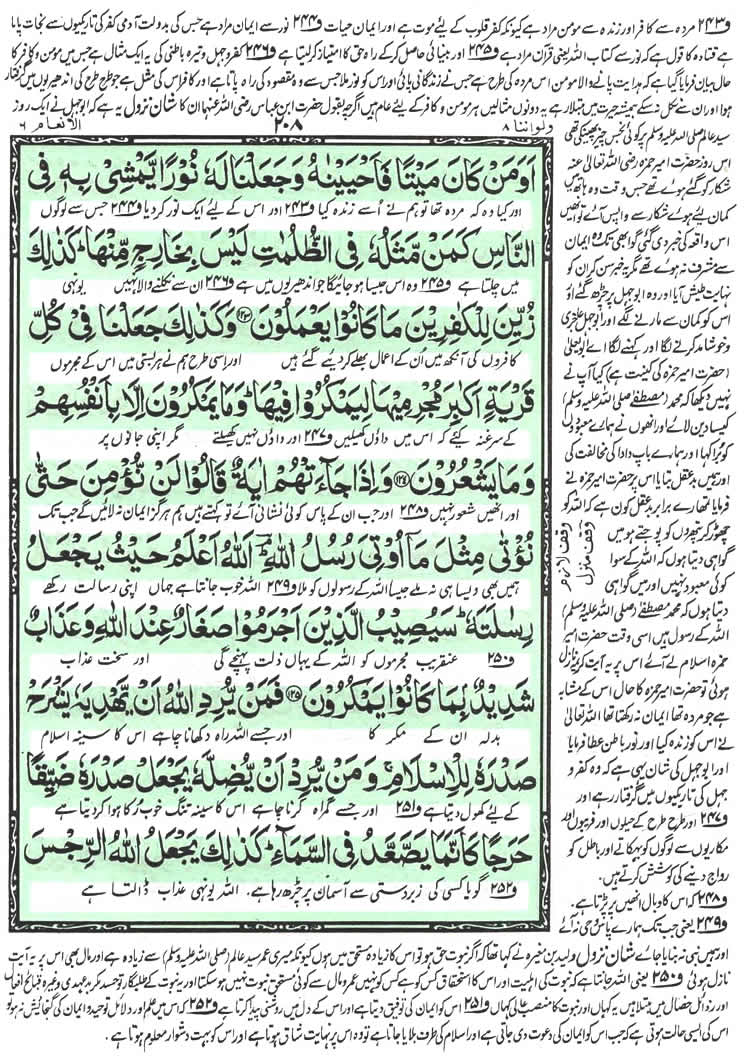 و۲۴۳ مردہ سے کافر اور زندہ سے مومن مراد ہے کیونکہ کفر قلوب کے لیئے موت ہے اور ایمان حیات و۲۴۴ نور سے ایمان مراد ہے جس کی بدولت آدمی کفر کی تاریکیوں سے نجات پاتا
ہے قتادہ کا قول ہے کہ نور سے کتاب اللہ یعنی قرآن مراد ہے و۲۴۵ اور بینائی حاصل کر کے راہ حق کا امتیاز کر لیتا ہے و۲۴۶ کفر و جہل و تیرہ باطنی کی یہ ایک مثال ہے جس میں مومن و کافر کا
حال بیان فرمایا گیا ہے کہ ہدایت پانے والا مومن اس مردہ کی طرح ہے جس نے زندگانی پائی اور اس کو نور ملا جس سے وہ مقصود کی راہ پاتا ہے اور کافر اس کی مثل ہے جو طرح طرح کی اندھیریوں میں گرفتار
ہوا اور ان سے نکل نہ سکے ہمیشہ حیرت میں مبتلا رہے یہ دونوں مثالیں ہر مومن و کافر کے لیئے عام ہیں اگرچہ بقول حضرت ابن عباس رضی اللہ عنہما ان کا شان نزول یہ ہے کہ ابوجہل نے ایک روز
ولواننا ۸
۲۰۸
الانعام ۶
سید عالم صلی اللہ علیہ وسلم پر کوئی نجس چیز پھینکی تھی
اس روز حضرت امیر حمزہ رضی اللہ تعالیٰ عنہ
شکار کو گئے ہوئے تھے جس وقت وہ ہاتھ میں
کمان لیئے ہوئے شکار سے واپس آئے تو انھیں
اس واقعہ کی خبر دی گئی گو ابھی تک وہ ایمان
سے مشرف نہ ہوئے تھے مگر یہ خبر سن کر ان کو
نہایت طیش آیا اور وہ ابوجہل پر چڑھ گئے اور
اس کو کمان سے مارنے لگے اور ابوجہل عاجزی
و خوشامد کرنے لگا اور کہنے لگا اے ابو یعلیٰ
(حضرت امیر حمزہ کی کنیت ہے) کیا آپ نے
نہیں دیکھا کہ محمد (مصطفےٰ صلی اللہ علیہ وسلم)
کیسا دین لائے اور انھوں نے ہمارے معبودوں
کو برا کہا اور ہمارے باپ دادا کی مخالفت کی
اور ہمیں بدعقل بتایا اس پر حضرت امیر حمزہ نے
فرمایا تمھارے برابر بدعقل کون ہے کہ اللہ کو
چھوڑ کر پتھروں کو پوجتے ہو میں
گواہی دیتا ہوں کہ اللہ کے سوا
کوئی معبود نہیں اور میں گواہی
دیتا ہوں کہ محمد مصطفےٰ (صلی اللہ علیہ وسلم)
اللہ کے رسول ہیں اسی وقت حضرت امیر
حمزہ اسلام لے آئے اس پر یہ آیت کریمہ نازل
ہوئی تو حضرت امیر حمزہ کا حال اس کے مشابہ
ہے جو مردہ تھا ایمان نہ رکھتا تھا اللہ تعالیٰ
نے اس کو زندہ کیا اور نور باطن عطا فرمایا
اور ابوجہل کی شان یہی ہے کہ وہ کفر و
جہل کی تاریکیوں میں گرفتار رہے اور
و۲۴۷ اور طرح طرح کے حیلوں اور فریبوں اور
مکاریوں سے لوگوں کو بہکاتے اور باطل کو
رواج دینے کی کوشش کرتے ہیں۔
و۲۴۸ کہ اس کا وبال انھیں پر پڑتا ہے۔
و۲۴۹ یعنی جب تک ہمارے پاس وحی نہ آئے
وقف لازم
وقف منزل
اَوَمَنْ كَانَ مَيْتًا فَاَحْيَيْنٰهُ وَجَعَلْنَا لَهٗ نُوْرًا يَّمْشِيْ بِهٖ فِي
اور کیا وہ کہ مردہ تھا تو ہم نے اُسے زندہ کیا و۲۴۳ اور اس کے لیئے ایک نور کر دیا و۲۴۴ جس سے لوگوں
النَّاسِ كَمَنْ مَّثَلُهٗ فِي الظُّلُمٰتِ لَيْسَ بِخَارِجٍ مِّنْهَا ؕ كَذٰلِكَ
میں چلتا ہے و۲۴۵ وہ اس جیسا ہو جائیگا جو اندھیریوں میں ہے و۲۴۶ ان سے نکلنے والا نہیں یونہی
زُيِّنَ لِلْكٰفِرِيْنَ مَا كَانُوْا يَعْمَلُوْنَ ۝ وَكَذٰلِكَ جَعَلْنَا فِيْ كُلِّ
کافروں کی آنکھ میں اُن کے اعمال بھلے کر دیے گئے ہیں اور اسی طرح ہم نے ہر بستی میں اس کے مجرموں
قَرْيَةٍ اَكٰبِرَ مُجْرِمِيْهَا لِيَمْكُرُوْا فِيْهَا ؕ وَمَا يَمْكُرُوْنَ اِلَّا بِاَنْفُسِهِمْ
کے سرغنہ کیئے کہ اس میں داؤں کھیلیں و۲۴۷ اور داؤں نہیں کھیلتے مگر اپنی جانوں پر
وَمَا يَشْعُرُوْنَ ۝ وَاِذَا جَآءَتْهُمْ اٰيَةٌ قَالُوْا لَنْ نُّؤْمِنَ حَتّٰى
اور انھیں شعور نہیں و۲۴۸ اور جب ان کے پاس کوئی نشانی آئے تو کہتے ہیں ہم ہرگز ایمان نہ لائیں گے جب تک
نُؤْتٰى مِثْلَ مَاۤ اُوْتِيَ رُسُلُ اللّٰهِ ؔۘ اَللّٰهُ اَعْلَمُ حَيْثُ يَجْعَلُ
ہمیں بھی ویسا ہی نہ ملے جیسا اللہ کے رسولوں کو ملا و۲۴۹ اللہ خوب جانتا ہے جہاں اپنی رسالت رکھے
رِسٰلَتَهٗ ؕ سَيُصِيْبُ الَّذِيْنَ اَجْرَمُوْا صَغَارٌ عِنْدَ اللّٰهِ وَعَذَابٌ
و۲۵۰ عنقریب مجرموں کو اللہ کے یہاں ذلت پہنچے گی اور سخت عذاب
شَدِيْدٌۢ بِمَا كَانُوْا يَمْكُرُوْنَ ۝۱۲۵ فَمَنْ يُّرِدِ اللّٰهُ اَنْ يَّهْدِيَهٗ يَشْرَحْ
بدلہ ان کے مکر کا اور جسے اللہ راہ دکھانا چاہے اس کا سینہ اسلام
صَدْرَهٗ لِلْاِسْلَامِ ۚ وَمَنْ يُّرِدْ اَنْ يُّضِلَّهٗ يَجْعَلْ صَدْرَهٗ ضَيِّقًا
کے لیئے کھول دیتا ہے و۲۵۱ اور جسے گمراہ کرنا چاہے اس کا سینہ تنگ خوب رُکا ہوا کر دیتا ہے
حَرَجًا كَاَنَّمَا يَصَّعَّدُ فِي السَّمَآءِ ؕ كَذٰلِكَ يَجْعَلُ اللّٰهُ الرِّجْسَ
و۲۵۲ گویا کسی کی زبردستی سے آسمان پر چڑھ رہا ہے۔ اللہ یونہی عذاب ڈالتا ہے
اور ہمیں نبی نہ بنایا جائے شان نزول ولید بن مغیرہ نے کہا تھا کہ اگر نبوت حق ہو تو اس کا زیادہ مستحق میں ہوں کیونکہ میری عمر سید عالم (صلی اللہ علیہ وسلم) سے زیادہ ہے اور مال بھی اس پر یہ آیت
نازل ہوئی و۲۵۰ یعنی اللہ جانتا ہے کہ نبوت کی اہلیت اور اس کا استحقاق کس کو ہے کس کو نہیں عمر و مال سے کوئی مستحق نبوت نہیں ہو سکتا اور یہ نبوت کے طلبگار تو حسد مکر بدعہدی وغیرہ قبائح افعال
اور رذائل خصال میں مبتلا ہیں یہ کہاں اور نبوت کا منصب عالی کہاں و۲۵۱ اس کو ایمان کی توفیق دیتا ہے اور اس کے دل میں روشنی پیدا کرتا ہے و۲۵۲ کہ اس میں علم اور دلائل توحید و ایمان کی گنجائش نہ ہو تو
اس کی ایسی حالت ہوتی ہے کہ جب اس کو ایمان کی دعوت دی جاتی ہے اور اسلام کی طرف بلایا جاتا ہے تو وہ اس پر نہایت شاق ہوتا ہے اور اس کو بہت دشوار معلوم ہوتا ہے۔